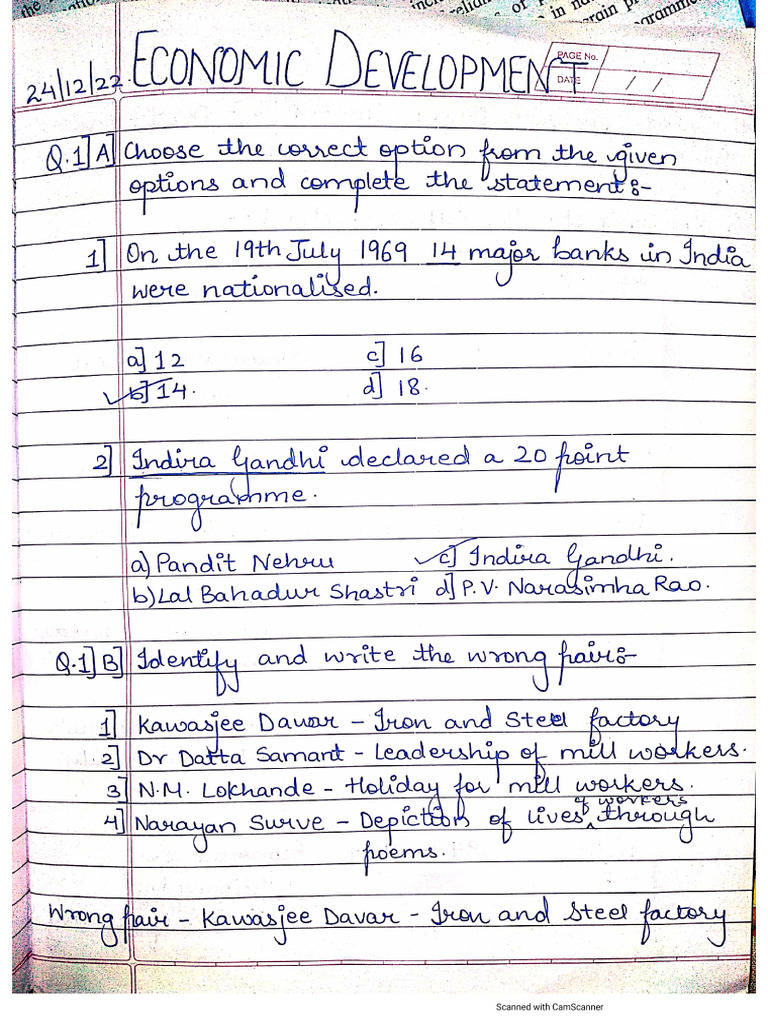 24/12/22 ECONOMIC DEVELOPMENT
PAGE No.
DATE / /
Q.1] A] Choose the correct option from the given
options and complete the statement :-
1] On the 19th July 1969 14 major banks in India
were nationalised.
a] 12 c] 16
b] 14. d] 18.
2] Indira Gandhi declared a 20 point
programme.
a) Pandit Nehru c] Indira Gandhi.
b) Lal Bahadur Shastri d] P.V. Narasimha Rao.
Q.1] B] Identify and write the wrong pair :-
1] Kawasjee Davar - Iron and Steel factory
2] Dr Datta Samant - Leadership of mill workers.
3] N.M. Lokhande - Holiday for mill workers.
4] Narayan Surve - Depiction of lives of workers through
poems.
Wrong pair - Kawasjee Davar - Iron and Steel factory
Scanned with CamScanner